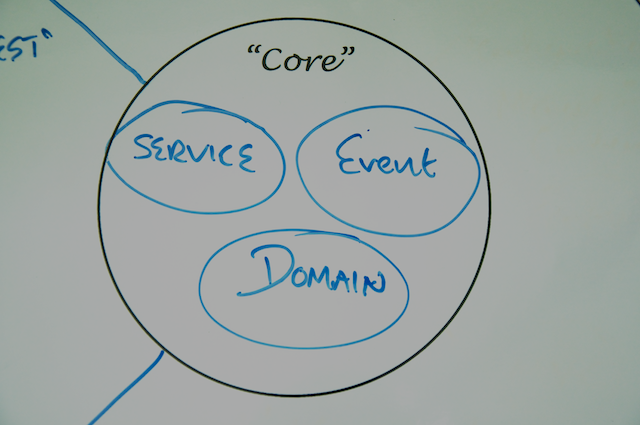 "Core"
SERVICE
Event
DOMAIN